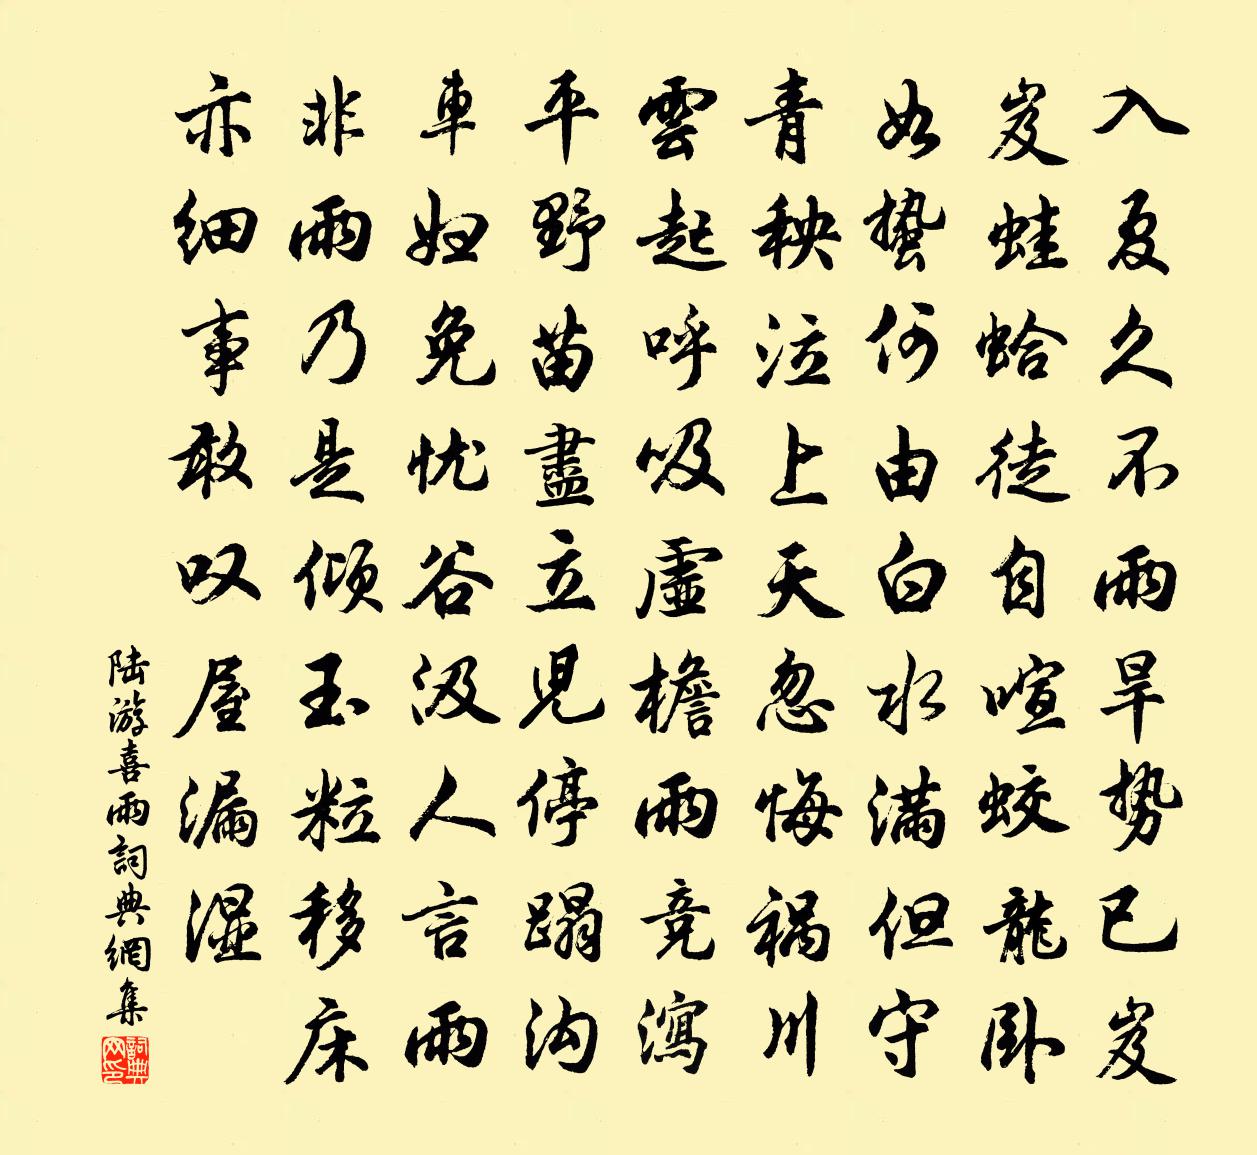 入夏久不雨旱势已岌
岌蛙蛤徒自喧蛟龍卧
如蛰何由白水满但守
青秧泣上天忽悔祸川
雲起呼吸虚檐雨竞瀉
平野苗盡立見停蹋沟
車妇免忧谷汲人言雨
非雨乃是倾玉粒移床
亦细事敢叹屋漏湿
陆游喜雨詞典網集
詞典网